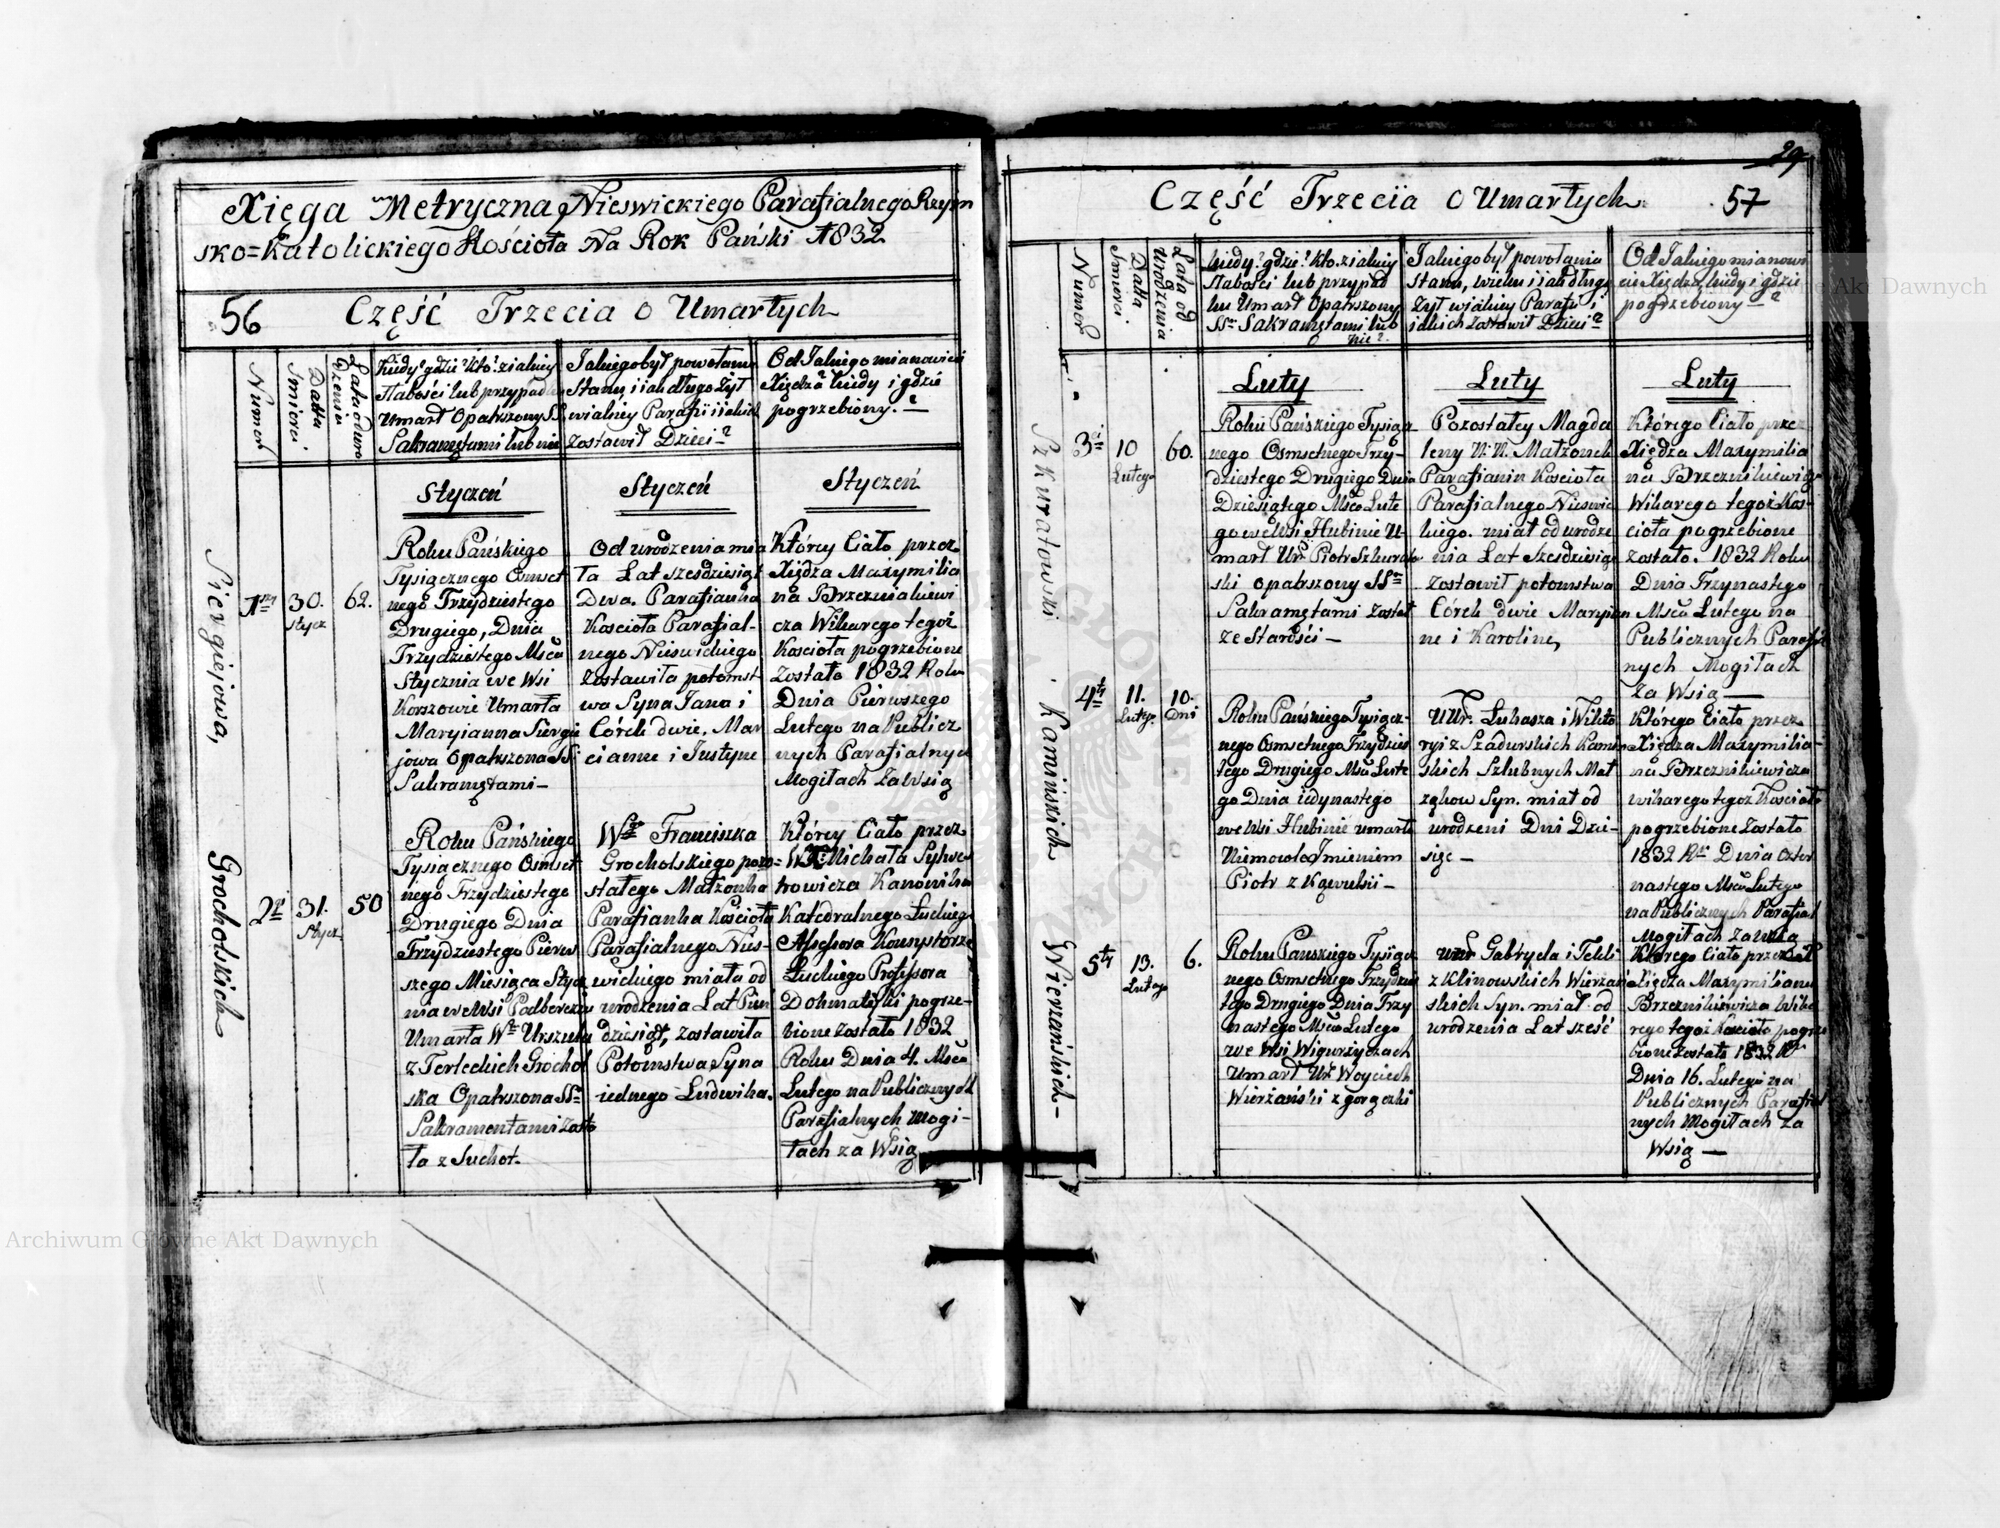 Xięga Metryczna Nieswickiego Parafialnego Rzym
sko=Katolickiego Kościoła Na Rok Pański 1832
56 Część Trzecia o Umarłych
Numer
Datta Smierci.
Lata od uro dzenia
Kiedy? gdzie? kto? z jakiey
słabości lub przypadku
Umarł Opatrszony SS.
Sakramętami lub nie
Jakiego był powołani
Stanu, i iak długo żył
w iakiey Parafii i iakich
zostawił Dzieci?
Od Jakiego mianowicie
Xiędza? kiedy i gdzie
pogrzebiony. ?
Styczeń
Styczeń
Styczeń
Siergiejowa,
1szy
30.
stycz
62.
Roku Pańskiego
Tysiącznego Osmset
nego Trzydziestego
Drugiego, Dnia
Trzydziestego Msca
Stycznia we Wsi
Korszowie Umarła
Maryianna Siergie
jowa Opatrszona SS
Sakramętami-
Od urodzenia mia
ła Lat szesdziesiąt
Dwa. Parafianka
Kościoła Parafial-
nego Nieswickiego
zostawiła potomst
wa Syna Jana i
Córek dwie. Mar
cianne i Justyne
Którey Ciało przez
Xiędza Maxymilia
na Brzezniakiewi
cza Wikarego tegoż
Kościoła pogrzebione
zostało 1832 Roku
Dnia Pierwszego
Lutego na Publicz
nych Parafialnych
Mogiłach za Wsią
Grocholskich
2gi
31.
Stycz
50
Roku Pańskiego
Tysiącznego Osmset
nego Trzydziestego
Drugiego Dnia
Trzydziestego Pierw
szego Miesiąca Stycz
nia we Wsi Podberezu
Umarła Wna Urszula
z Terleckich Grochol
ska Opatrszona SSmi
Sakramentami zosta
ła z Suchot.
Wgo Franciszka
Grocholskiego pozo=
stałego Małżonka
Parafianka Kościoła
Parafialnego Nies-
wickiego miała od
urodzenia Lat Pięć
dziesiąt, zostawiła
Potomstwa Syna
iednego Ludwika.
Którey Ciało przez
W. X. Michała Sylwe
trowicza Kanonika
Katedralnego Łuckiego
Asessora Konsystorza
Łuckiego Professora
Dokmatyki pogrze-
bione zostało 1832
Roku Dnia 4. Msca
Lutego na Publicznych
Parafialnych Mogi-
łach za Wsią
29
Część Trzecia o Umarłych 57
Numer
Datta Smierci.
Lata od Urodzenia
kiedy? gdzie? kto. z iakiey
słabości lub przypad
ku Umarł Opatrszony
SSmi Sakramętami lub
nie?
Jakiego był powołania
Stanu, wieku i iak długo
żył w iakiey Parafii i
iakich zostawił Dzieci?
Od Jakiego mianowi
cie Xiędza, kiedy i gdzie
pogrzebiony ?
Luty
Luty
Luty
Szkuratowski
3ci
10
Lutego
60.
Roku Pańskiego Tysiącz
nego Osmsetnego Trzy-
dziestego Drugiego Dnia
Dziesiątego Msca Lute
go we Wsi Hubinie U-
marł Ur. Piotr Szkurato
ski opatrszony SSmi
Sakramętami został
ze Starości -
Pozostałey Magda
leny N. N. Małżonek
Parafianin Kościoła
Parafialnego Nieswic
kiego. miał od urodze
nia Lat Szesdziesiąt
zostawił potomstwa
Córek dwie Maryian
ne i Karoline,
Którego Ciało przez
Xiędza Maxymilia
na Brzezniakiewicza
Wikarego tegoż Kos-
cioła pogrzebione
zostało. 1832 Roku
Dnia Trzynastego
Msca Lutego na
Publicznych Parafial
nych Mogiłach
za Wsią
Kamińskich
4ty
11.
Lutego
10.
Dni
Roku Pańskiego Tysiącz-
nego Osmsetnego Trzydzies
tego Drugiego Msca Lute
go Dnia iedynastego
we Wsi Hubinie umarło
Niemowle Imieniem
Piotr z Kąwulsii -
UUr. Łukasza i Wikto
ryi z Szadurskich Kamin
skich Szlubnych Mał
żąkow Syn. miał od
urodzeni Dni Dzie-
sięc -
Którego Ciało przez
Xiędza Maxymilia-
na Brzezniakiewicza
wikarego tegoż Kościoła
pogrzebione zostało
1832 Ru Dnia czter
nastego Msca Lutego
na Publicznych Parafial
Mogiłach za Wsią
Wierzańskich -
5ty
13.
Lutego
6.
Roku Pańskiego Tysiącz
nego Osmsetnego Trzydzies
tego Drugiego Dnia Trzy
nastego Msca Lutego
we Wsi Wigurzyczach
Umarł Ur. Woyciech
Wierzański z gorączki
Gabryela i Tekli
z Klinowskich Wierzań
skich Syn. miał od
urodzenia Lat sześć
Którego Ciało przez
Xiędza Maxymiliana
Brzezniakiewicza Wika
rego tegoż Kościoła pogrze
bione zostało 1832 R.
Dnia 16. Lutego na
Publicznych Parafial
nych Mogiłach za
Wsią
Archiwum Główne Akt Dawnych
Archiwum Główne Akt Dawnych